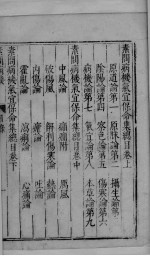 素問病機氣宜保命集總目卷上
原道論第一 原脉論第二 攝生論第三
陰陽論第四 察色論第五 傷寒論第六
病機論第七 氣宜論第八 本草論第九
素問病機氣宜保命集總目卷中
中風論 癘風
破傷風 解利傷寒論
内傷論 瘧論 吐論
霍亂論 心痛論
素問病機氣宜保命集總目卷下